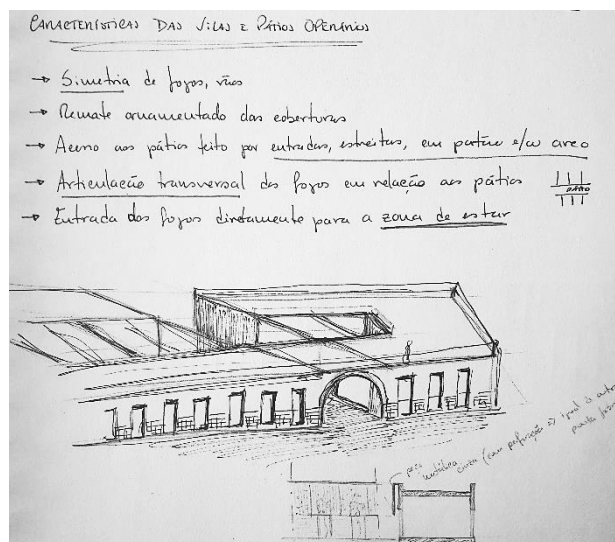 CARACTERÍSTICAS DAS VILAS E PÁTIOS OPERÁRIOS
→ Simetria de fogos, vãos
→ Remate ornamentado das coberturas
→ Acesso aos pátios feito por entradas, estreitas, em portão e/ou arco
→ Articulação transversal dos fogos em relação aos pátios
PÁTIO
→ Entrada dos fogos diretamente para a zona de estar